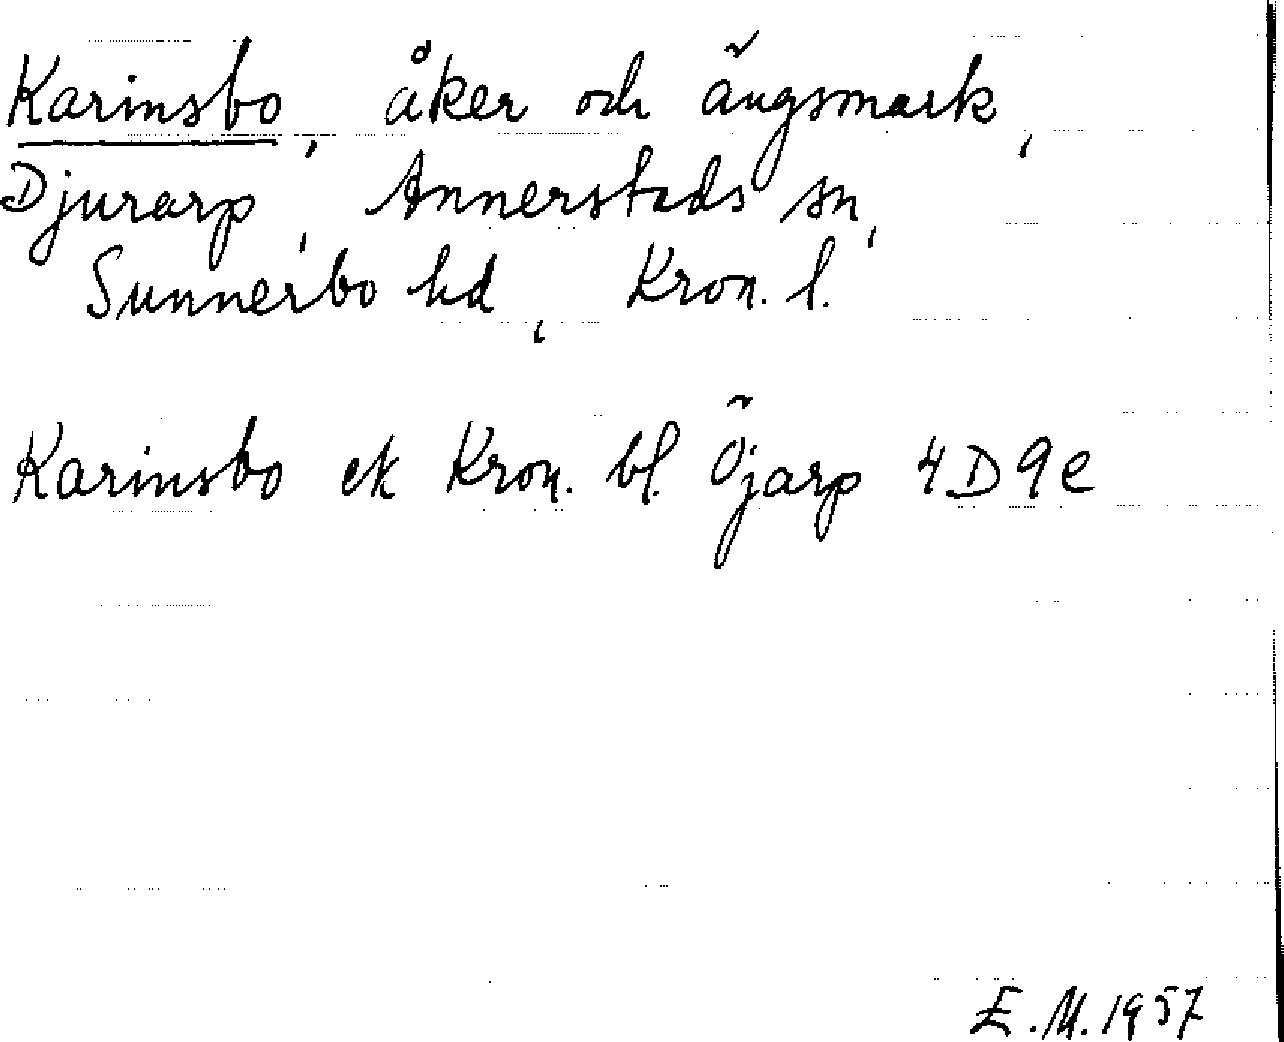 Karinsbo, åker och ängsmark,
Djurarp, Annerstads sn,
Sunnerbo hd, Kron. l.
Karinsbo ek Kron. bl. Öjarp 4D9e
E.M. 1957